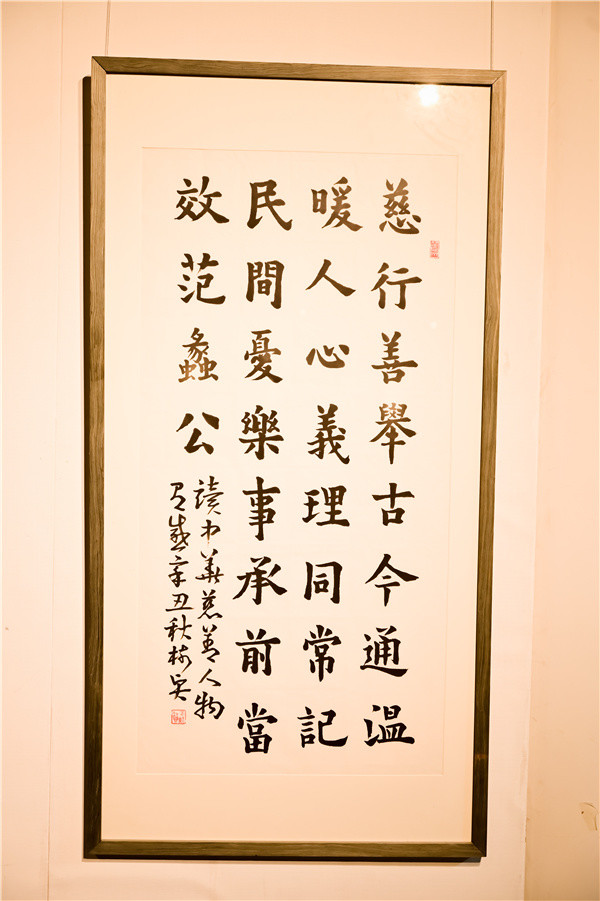 慈行善舉古今通溫
暖人心義理同常記
民間憂樂事承前當
效范蠡公
讀中華慈善人物
有感辛丑秋梅